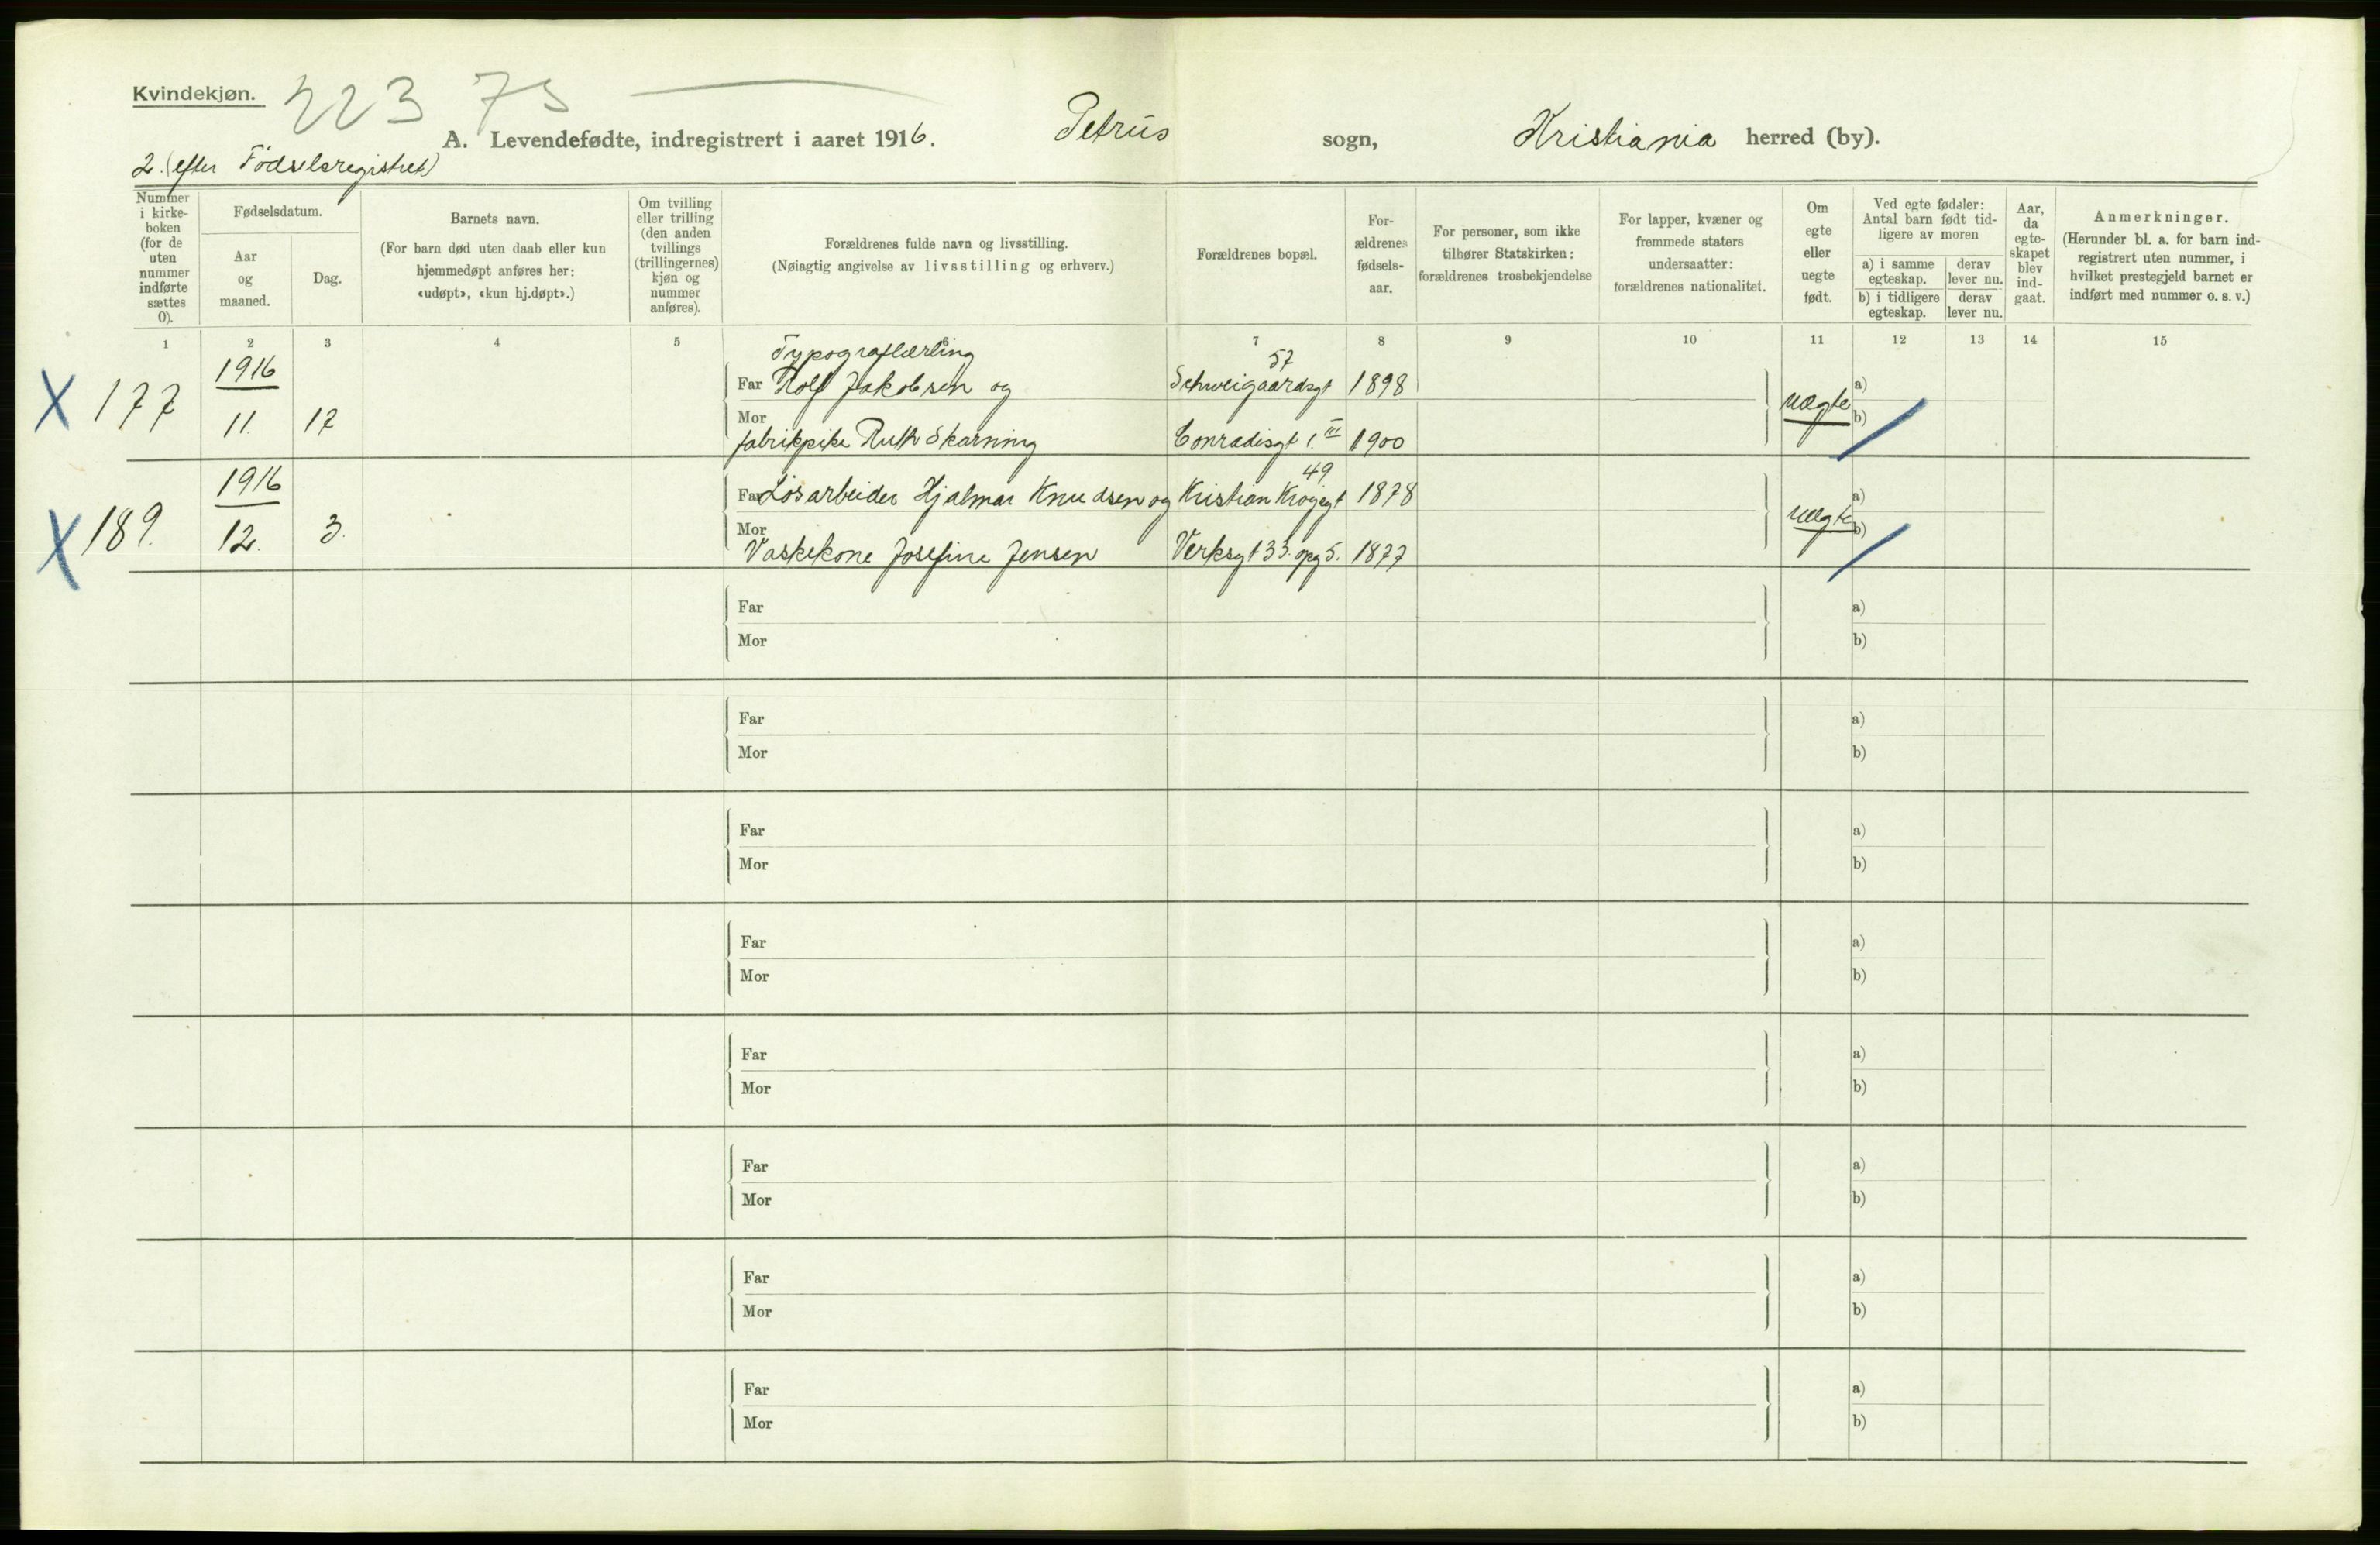 Kvindekjøn. 223 75
A. Levendefødte, indregistrert i aaret 1916. Petrus sogn, Kristiania herred (by).
2. (efter Födselsregistret)
Nummer i kirke-boken (for de uten nummer indførte sættes 0).
Fødselsdatum.
Aar og maaned.
Dag.
Barnets navn.
(For barn død uten daab eller kun hjemmedøpt anføres her: «udøpt», «kun hj.døpt».)
Om tvilling eller trilling (den anden tvillings (trillingernes) kjøn og nummer anføres).
Forældrenes fulde navn og livsstilling.
(Nøiagtig angivelse av livsstilling og erhverv.)
Forældrenes bopæl.
For-ældrenes fødsels-aar.
For personer, som ikke tilhører Statskirken: forældrenes trosbekjendelse
For lapper, kvæner og fremmede staters undersaatter: forældrenes nationalitet.
Om egte eller uegte født.
Ved egte fødsler: Antal barn født tid-ligere av moren
a) i samme egteskap. derav lever nu.
b) i tidligere egteskap. derav lever nu.
Aar, da egte-skapet blev ind-gaat.
Anmerkninger.
(Herunder bl. a. for barn ind-registrert uten nummer, i hvilket prestegjeld barnet er indført med nummer o. s. v.)
1 2 3 4 5 6 7 8 9 10 11 12 13 14 15
Typograflærling 57
X 177 1916 Far Rolf Jakobsen og Schweigaardsgt 1898 uægte a)
11. 17 Mor fabrikpike Ruth Skarning Conradisgt 1. III 1900 b)
49
X 189. 1916 Far Løsarbeider Hjalmar Knudsen og Kristian Krogsgt 1878 uægte a)
12. 3. Mor Vaskekone Josefine Jensen Verksgt 33. opg 5. 1877 b)
Far a)
Mor b)
Far a)
Mor b)
Far a)
Mor b)
Far a)
Mor b)
Far a)
Mor b)
Far a)
Mor b)
Far a)
Mor b)
Far a)
Mor b)